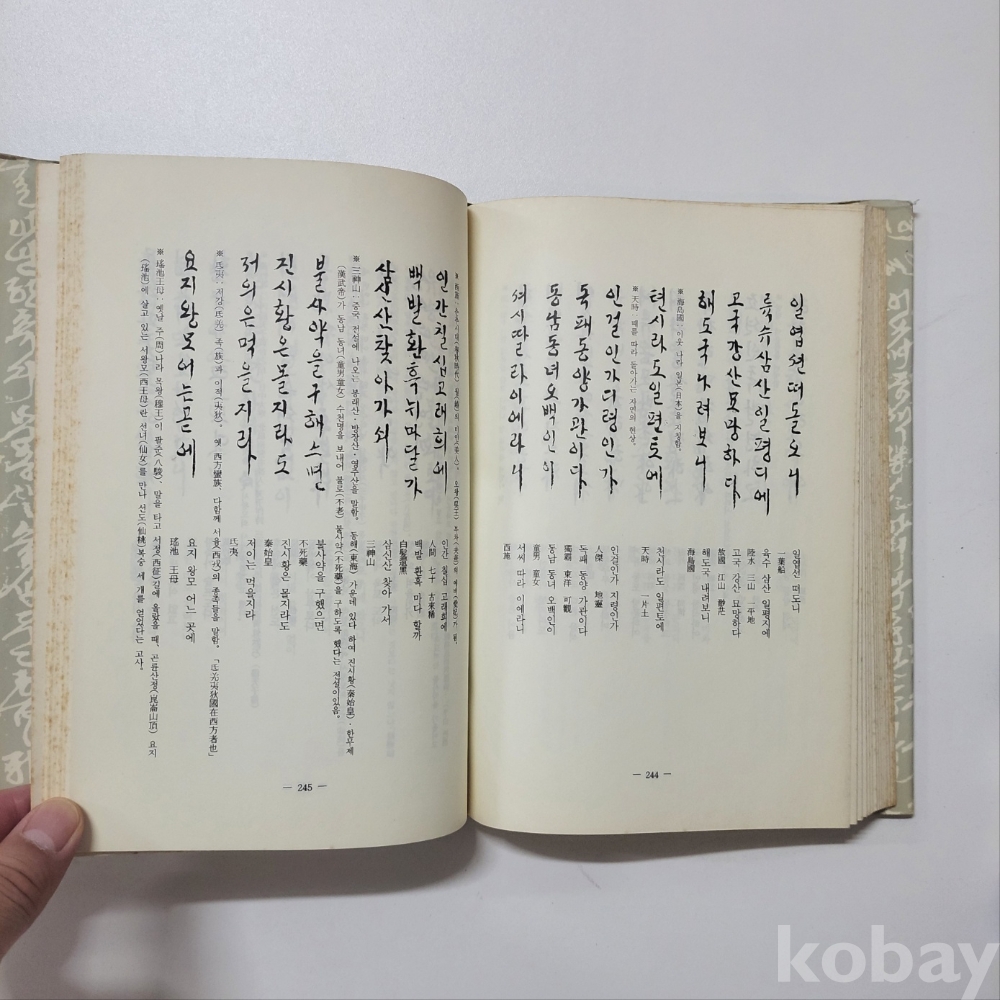 일엽션떠도오니
륙슈삼산일평디에
고국강산묘망하다
해도국나려보니
※ 海島國: 이웃 나라 일본(日本)을 지칭함.
텬시라도일편토에
※ 天時: 때를 따라 돌아가는 자연의 현상.
인걸인가디령인가
독패동양가관이다
동남동녀오백인이
셔시딸라이에라니
일엽션 떠도니
一葉船
육수 삼산 일평지에
陸水 三山 一平地
고국 강산 묘망하다
故國 江山 渺茫
해도국 내려보니
海島國
천시라도 일편토에
天時 一片土
인걸인가 지령인가
人傑 地靈
독패 동양 가관이다
獨覇 東洋 可觀
동남 동녀 오백인이
童男 童女
서씨 따라 이에라니
西施
— 244 —
인간칠십고래희에
백발환흑늬마달가
삼신산찾아가쇠
※ 三神山: 중국 전설에 나오는 봉래산·방장산·영주산을 말함. 동해(東海) 가운데 있다 하여 진시황(秦始皇)·한무제
(漢武帝)가 동남 동녀(童男童女) 수천명을 보내어 불로(不老) 불사약(不死藥)을 구하도록 했다는 전설이있음.
불사약을구해스면
진시황은몰지라도
저의은먹을지라
※ 氐夷: 저강(氐羌) 족(族)과 이적(夷狄). 옛 西方蠻族. 다함께 서융(西戎)의 종족들을 말함. 「氐羌夷狄國在西方者也」
요지왕모어는곧에
※ 瑤池王母: 옛날 주(周)나라 목왕(穆王)이 팔준(八駿) 말을 타고 서정(西征)길에 올랐을 때, 곤륜산정(崑崙山頂) 요지
(瑤池)에 살고 있는 서왕모(西王母)란 선녀(仙女)를 만나 선도(仙桃)복숭 세 개를 얻었다는 고사.
인간 칠십 고래희에
人間 七十 古來稀
백발 환흑 마다 할까
白髮還黑
삼신산 찾아 가서
三神山
불사약을 구했으면
不死藥
진시황은 몰지라도
秦始皇
저이는 먹을지라
氐夷
요지 왕모 어느 곳에
瑤池 王母
— 245 —
kobay